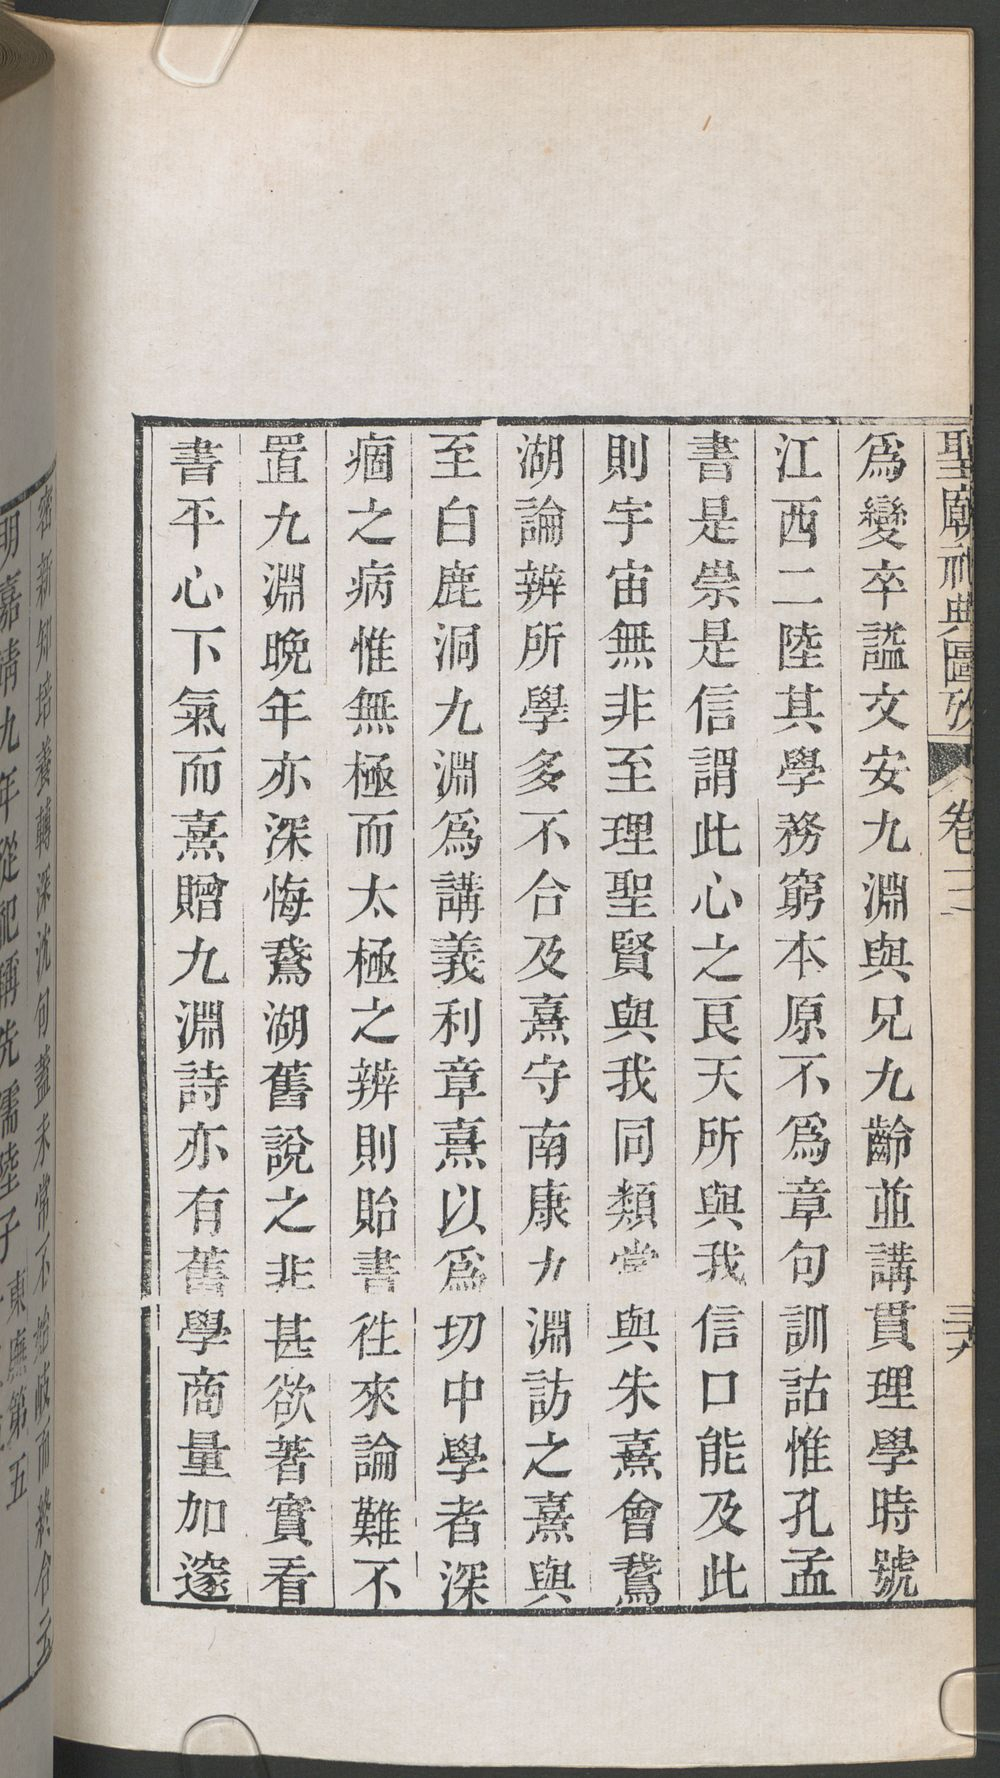 聖廟祀典圖攷 卷三 三九
爲變卒謚文安九淵與兄九齡並講貫理學時號
江西二陸其學務窮本原不爲章句訓詁惟孔孟
書是崇是信謂此心之良天所與我信口能及此
則宇宙無非至理聖賢與我同類嘗與朱熹會鵞
湖論辨所學多不合及熹守南康九淵訪之熹與
至白鹿洞九淵爲講義利章熹以爲切中學者深
痼之病惟無極而太極之辨則貽書徃來論難不
置九淵晩年亦深悔鵞湖舊說之非甚欲著實看
書平心下氣而熹贈九淵詩亦有舊學商量加邃
密新知培養轉深沈句蓋未常不始岐而終合云
明嘉靖九年從祀稱先儒陸子東廡第五